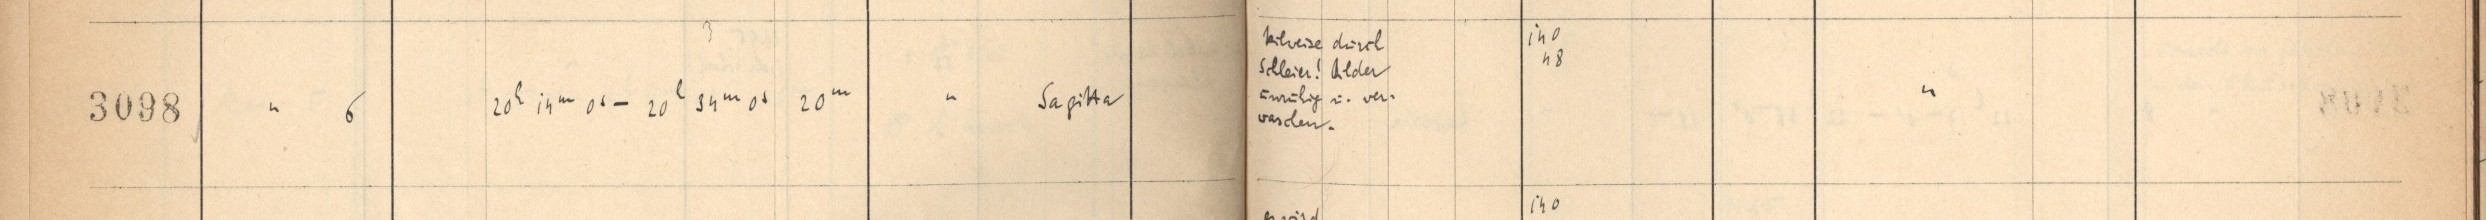 3
3098 " 6 20h 14m 0s – 20h 34m 0s 20m " Sagitta
teilweise durch
Schleier! Bilder
unruhig u. ver-
waschen.
140
48
"
140